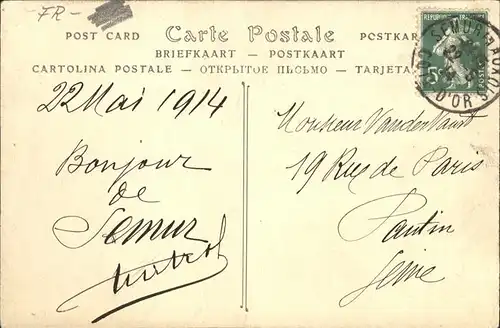 -FR-
POST CARD Carte Postale POSTKAR
BRIEFKAART — POSTKAART
CARTOLINA POSTALE — ОТКРЫТОЕ ПІСЬМО — TARJETA
RÉPUBLIQUE FRANÇAISE
5
POSTES
SEMUR
D'OR
22 Mai 1914
Bonjour
de
Semur
Monsieur Vanden
19 Rue de Paris
Pantin
Seine